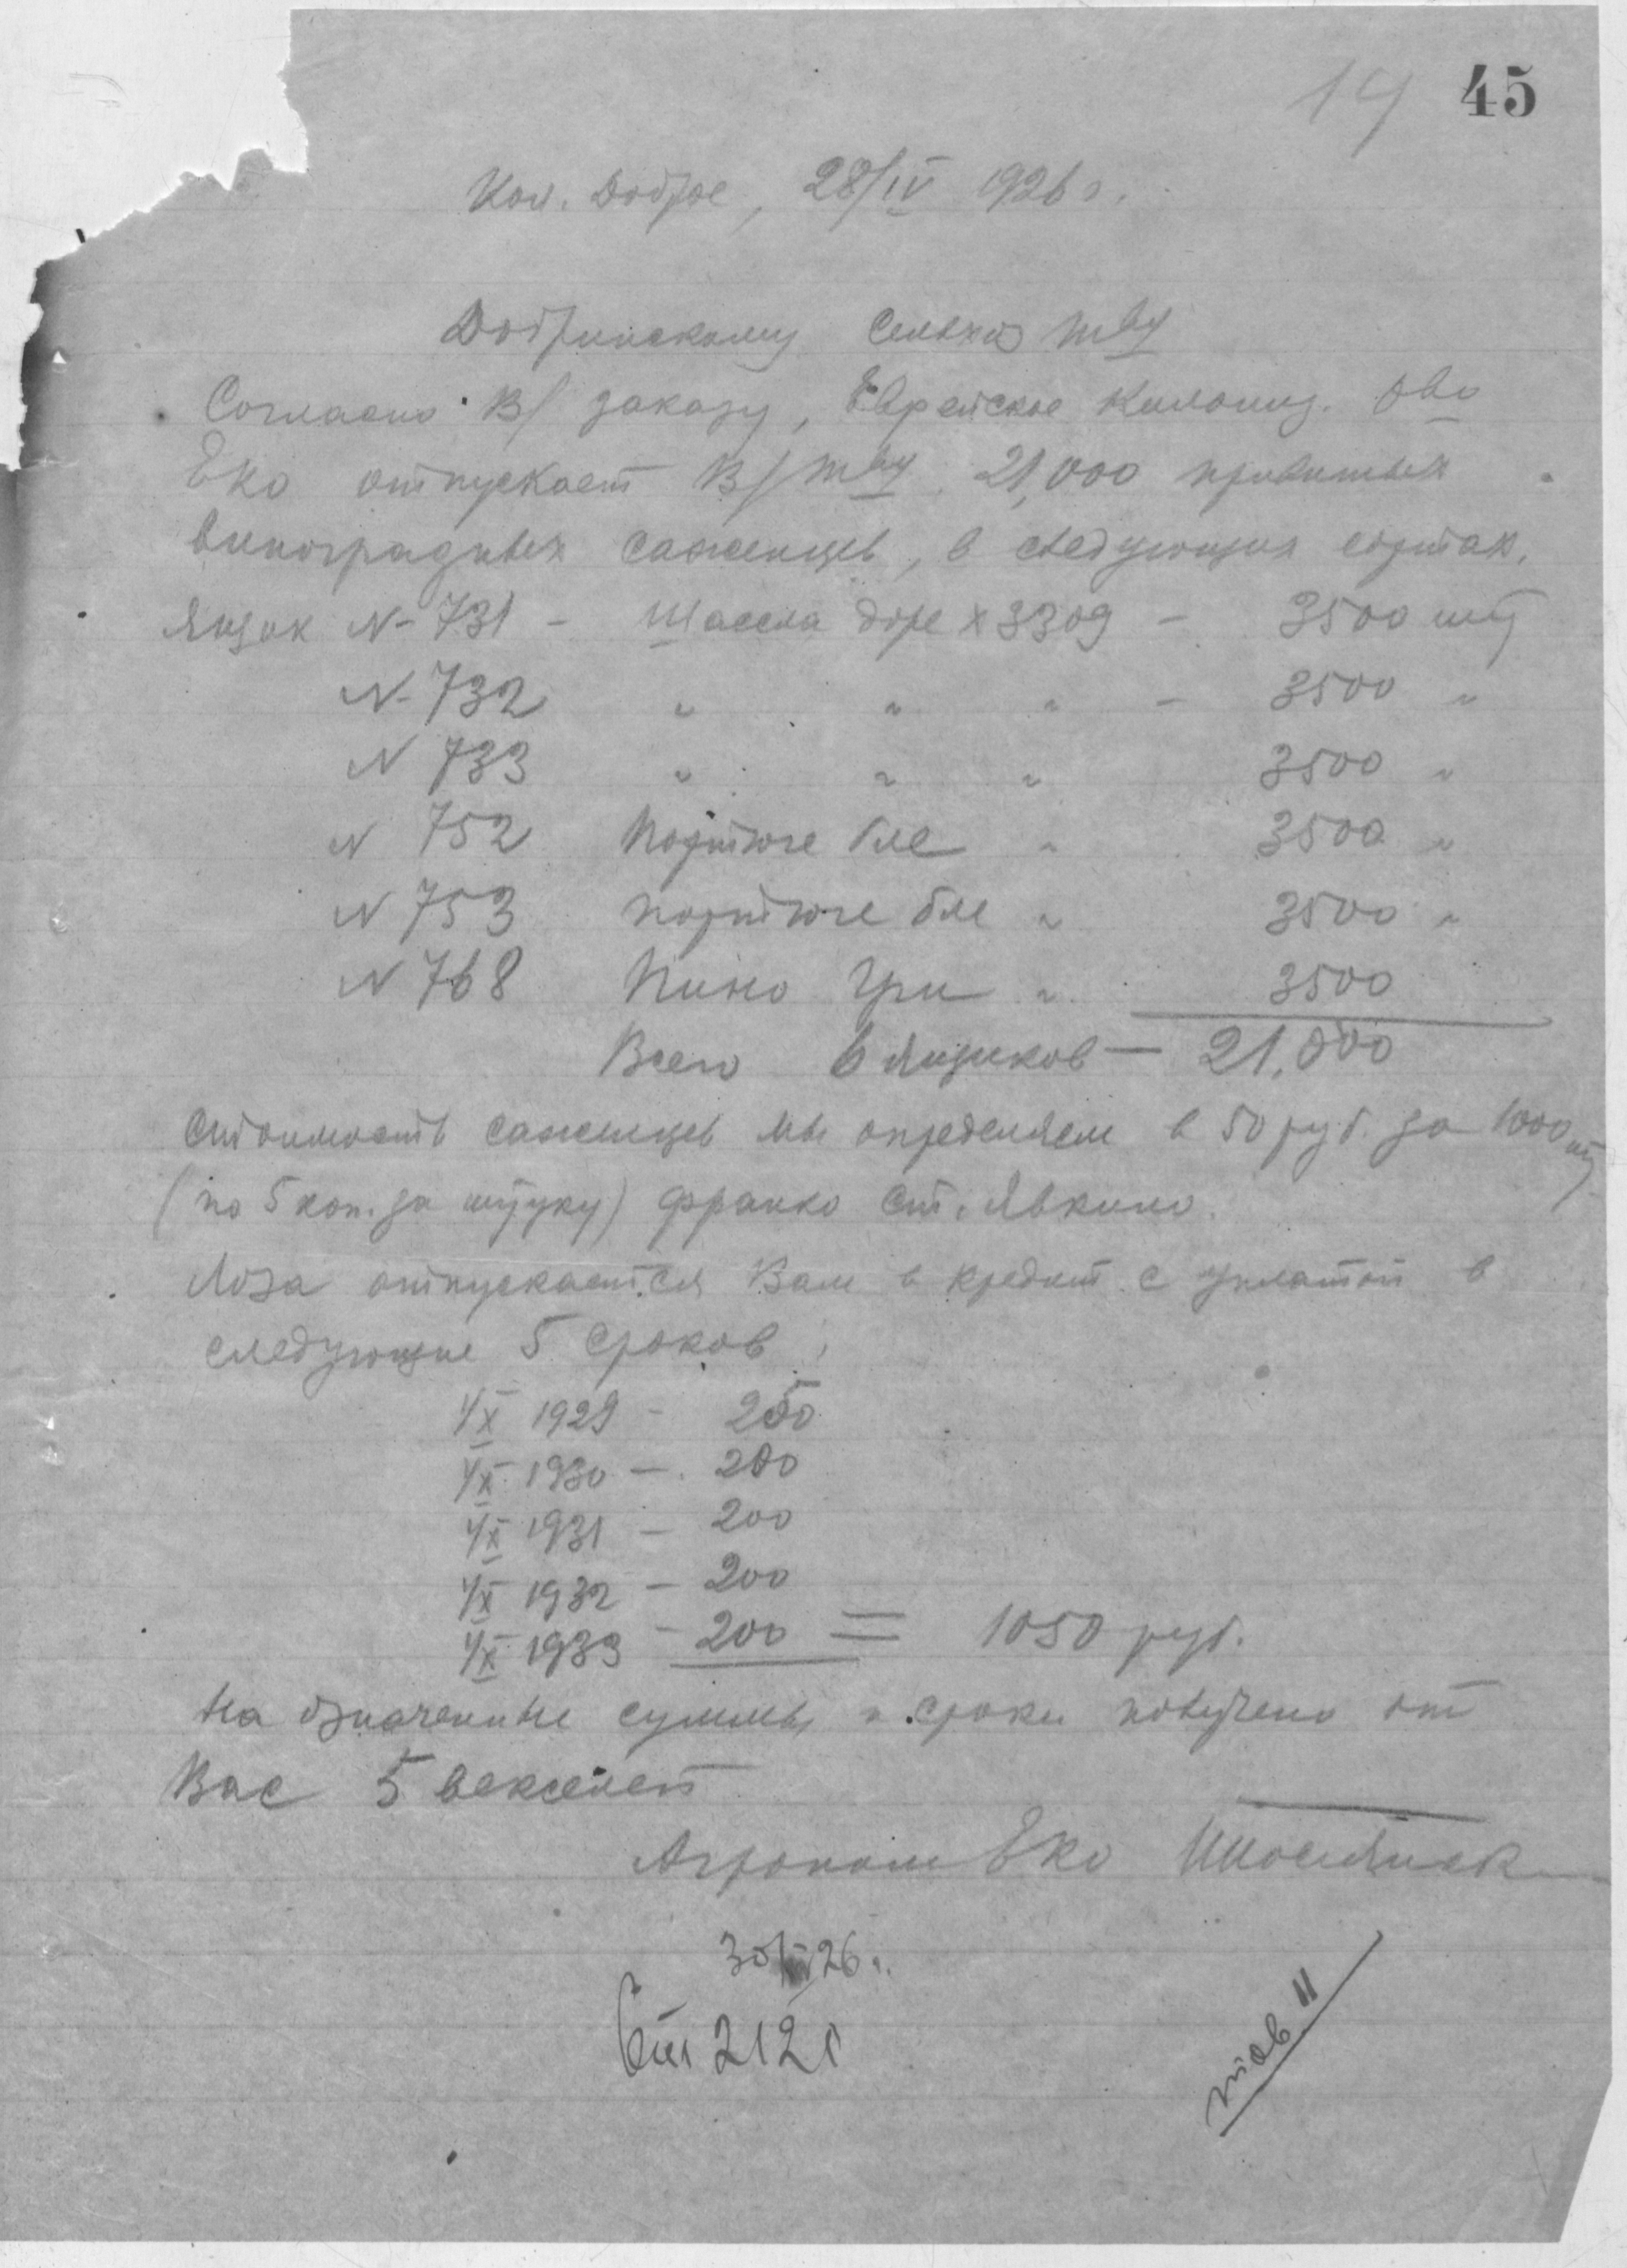 19 45
Кол. Доброе, 28/IV 1926 г.
Добринскому Сельхоз тву
Согласно В/ заказу, Еврейское Колониз. О-во
Еко отпускает В/тву 21,000 привитых
виноградных саженцев, в следующих сортах.
Ящик N- 731 - Шассла доре х 3309 - 3500 шт
N- 732 " " " - 3500 "
N 733 " " " 3500 "
N 752 Портюге бле " 3500 "
N 753 Портюге бле " 3500 "
N 768 Пино Гри " 3500
Всего 6 ящиков — 21,000
Стоимость саженцев мы определяем в 50 руб. за 1000 шт
(по 5 коп. за штуку) франко ст. Явкино.
Лоза отпускается Вам в кредит с уплатой в
следующие 5 сроков:
1/X 1929 - 250
1/X 1930 — 200
1/X 1931 — 200
1/X 1932 — 200
1/X 1933 - 200 = 1050 руб.
На означенные суммы и сроки получено от
Вас 5 векселей
Агроном Еко
26 г.
212